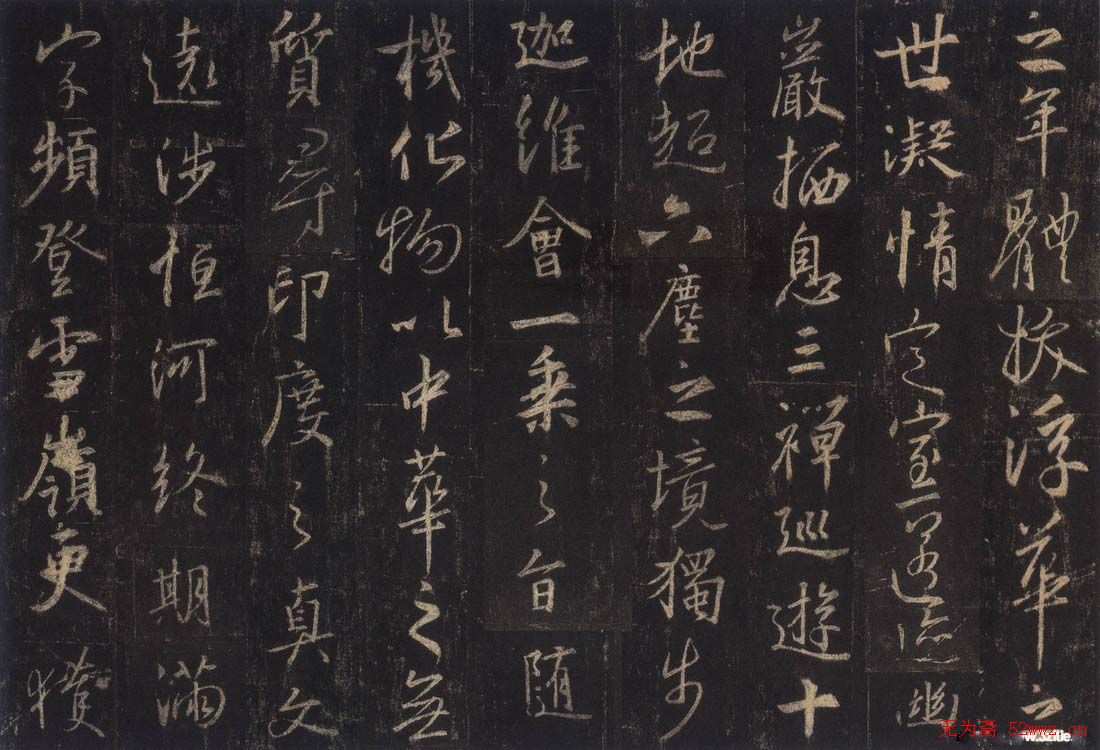 之年體拔浮華之
世凝情定室匿跡幽
巖栖息三禪巡遊十
地超六塵之境獨步
迦維會一乘之旨隨
機化物以中華之無
質尋印度之真文
遠涉恒河終期滿
字頻登雪嶺更獲
无为斋 52wwz.cn